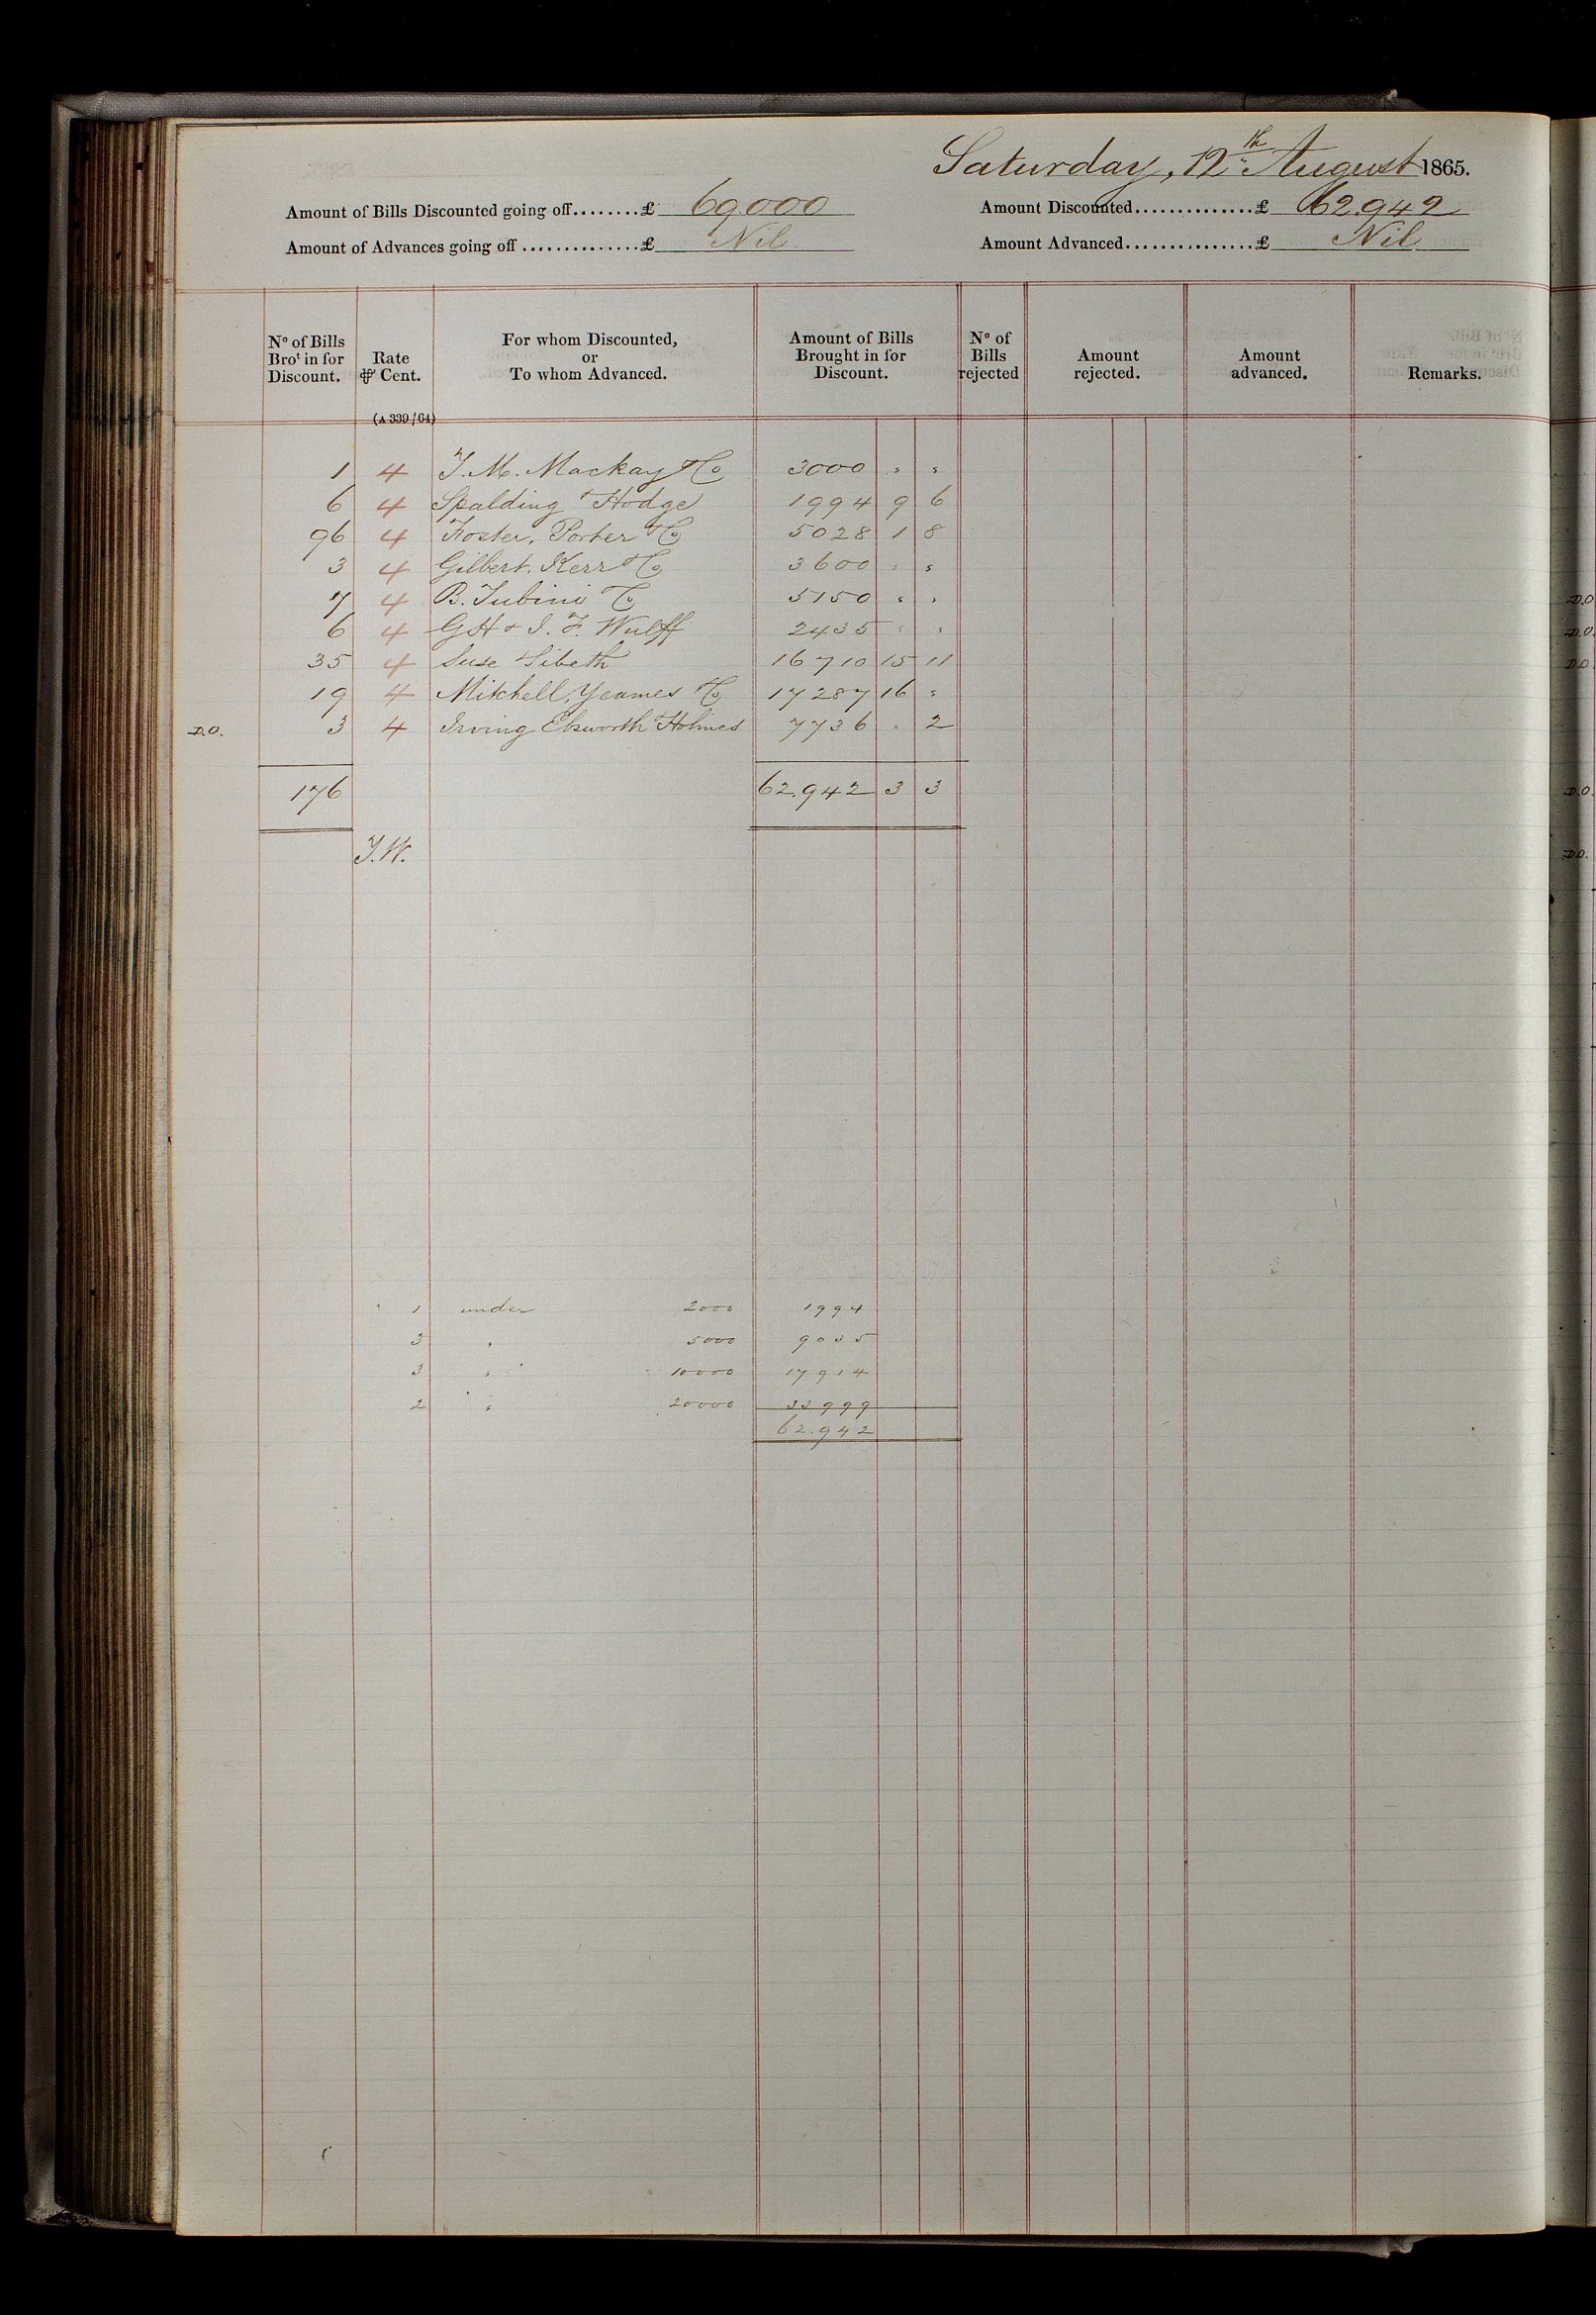 Saturday, 12th August 1865.
Amount of Bills Discounted going off........£ 69.000 Amount Discounted...............£ 62.942
Amount of Advances going off ...............£ Nil Amount Advanced................£ Nil
No of Bills Brot in for Discount. Rate ⅌ Cent. For whom Discounted, or To whom Advanced. Amount of Bills Brought in for Discount. No of Bills rejected Amount rejected. Amount advanced. Remarks.
(A 339/64)
1 4 J. M. Mackay & Co 3000 " "
6 4 Spalding & Hodge 1994 9 6
96 4 Foster, Porter & Co 5028 1 8
3 4 Gilbert, Kerr & Co 3600 " "
7 4 B. Tubini & Co 5150 " "
6 4 G H & J. F. Wulff 2435 " "
35 4 Suse & Sibeth 16710 15 11
19 4 Mitchell, Yeames & Co 17287 16 "
D.O. 3 4 Irving Ebsworth & Holmes 7736 " 2
176 62.942 3 3
J.W.
1 under 2000 1994
3 " 5000 9035
3 " 10000 17914
2 " 20000 33999
62.942
D.O.
D.O.
D.O.
D.O.
D.O.